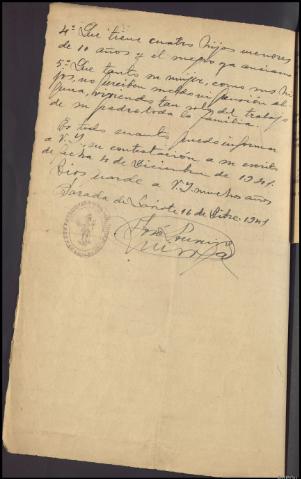 4º Que tiene cuatro hijos menores
de 10 años y el suegro ya anciano
5º Que tanto su mujer, como sus hi
jos, no perciben sueldo ni pensión al
guna, viviendo tan solo del trabajo
de su padre toda la familia.
Es todo cuanto puedo informar
a V.I. en contestación a su escrito
de fecha 4 de Diciembre de 1941.
Dios guarde a V.I. muchos años
Posada de 16 de Dbre. 1941
José